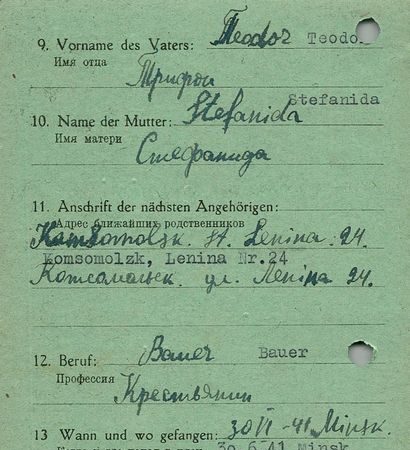 9. Vorname des Vaters: Teodor Teodor
Имя отца
Трифон
Stefanida
10. Name der Mutter: Stefanida
Имя матери
Стефанида
11. Anschrift der nächsten Angehörigen:
Адрес ближайших родственников
Komsomolzk. St. Lenina. 24.
Komsomolzk, Lenina Nr.24
Комсомольск. ул. Ленина 24.
12. Beruf: Bauer Bauer
Профессия
Крестьянин
13 Wann und wo gefangen: 30 VI -41 Minsk.
30.6.41 Minsk